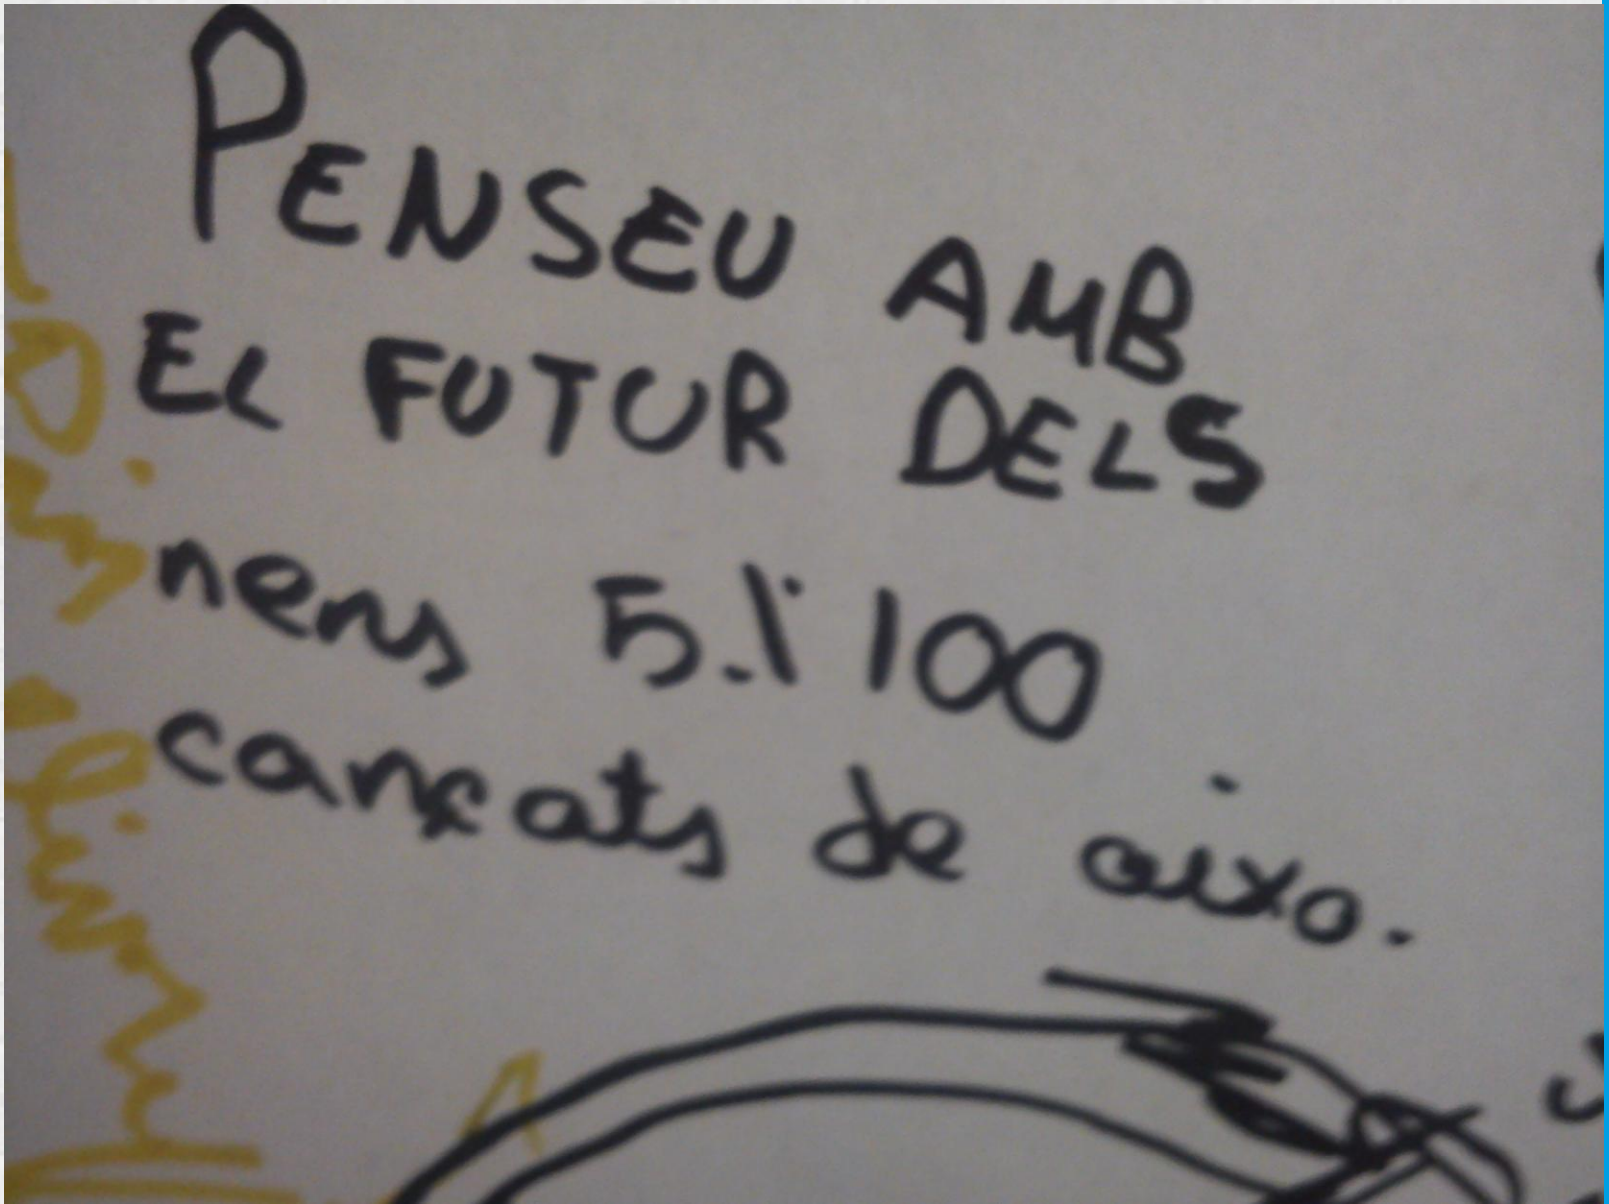 PENSEU AMB
EL FUTUR DELS
nens 5.\' 100
cançats de aixo.